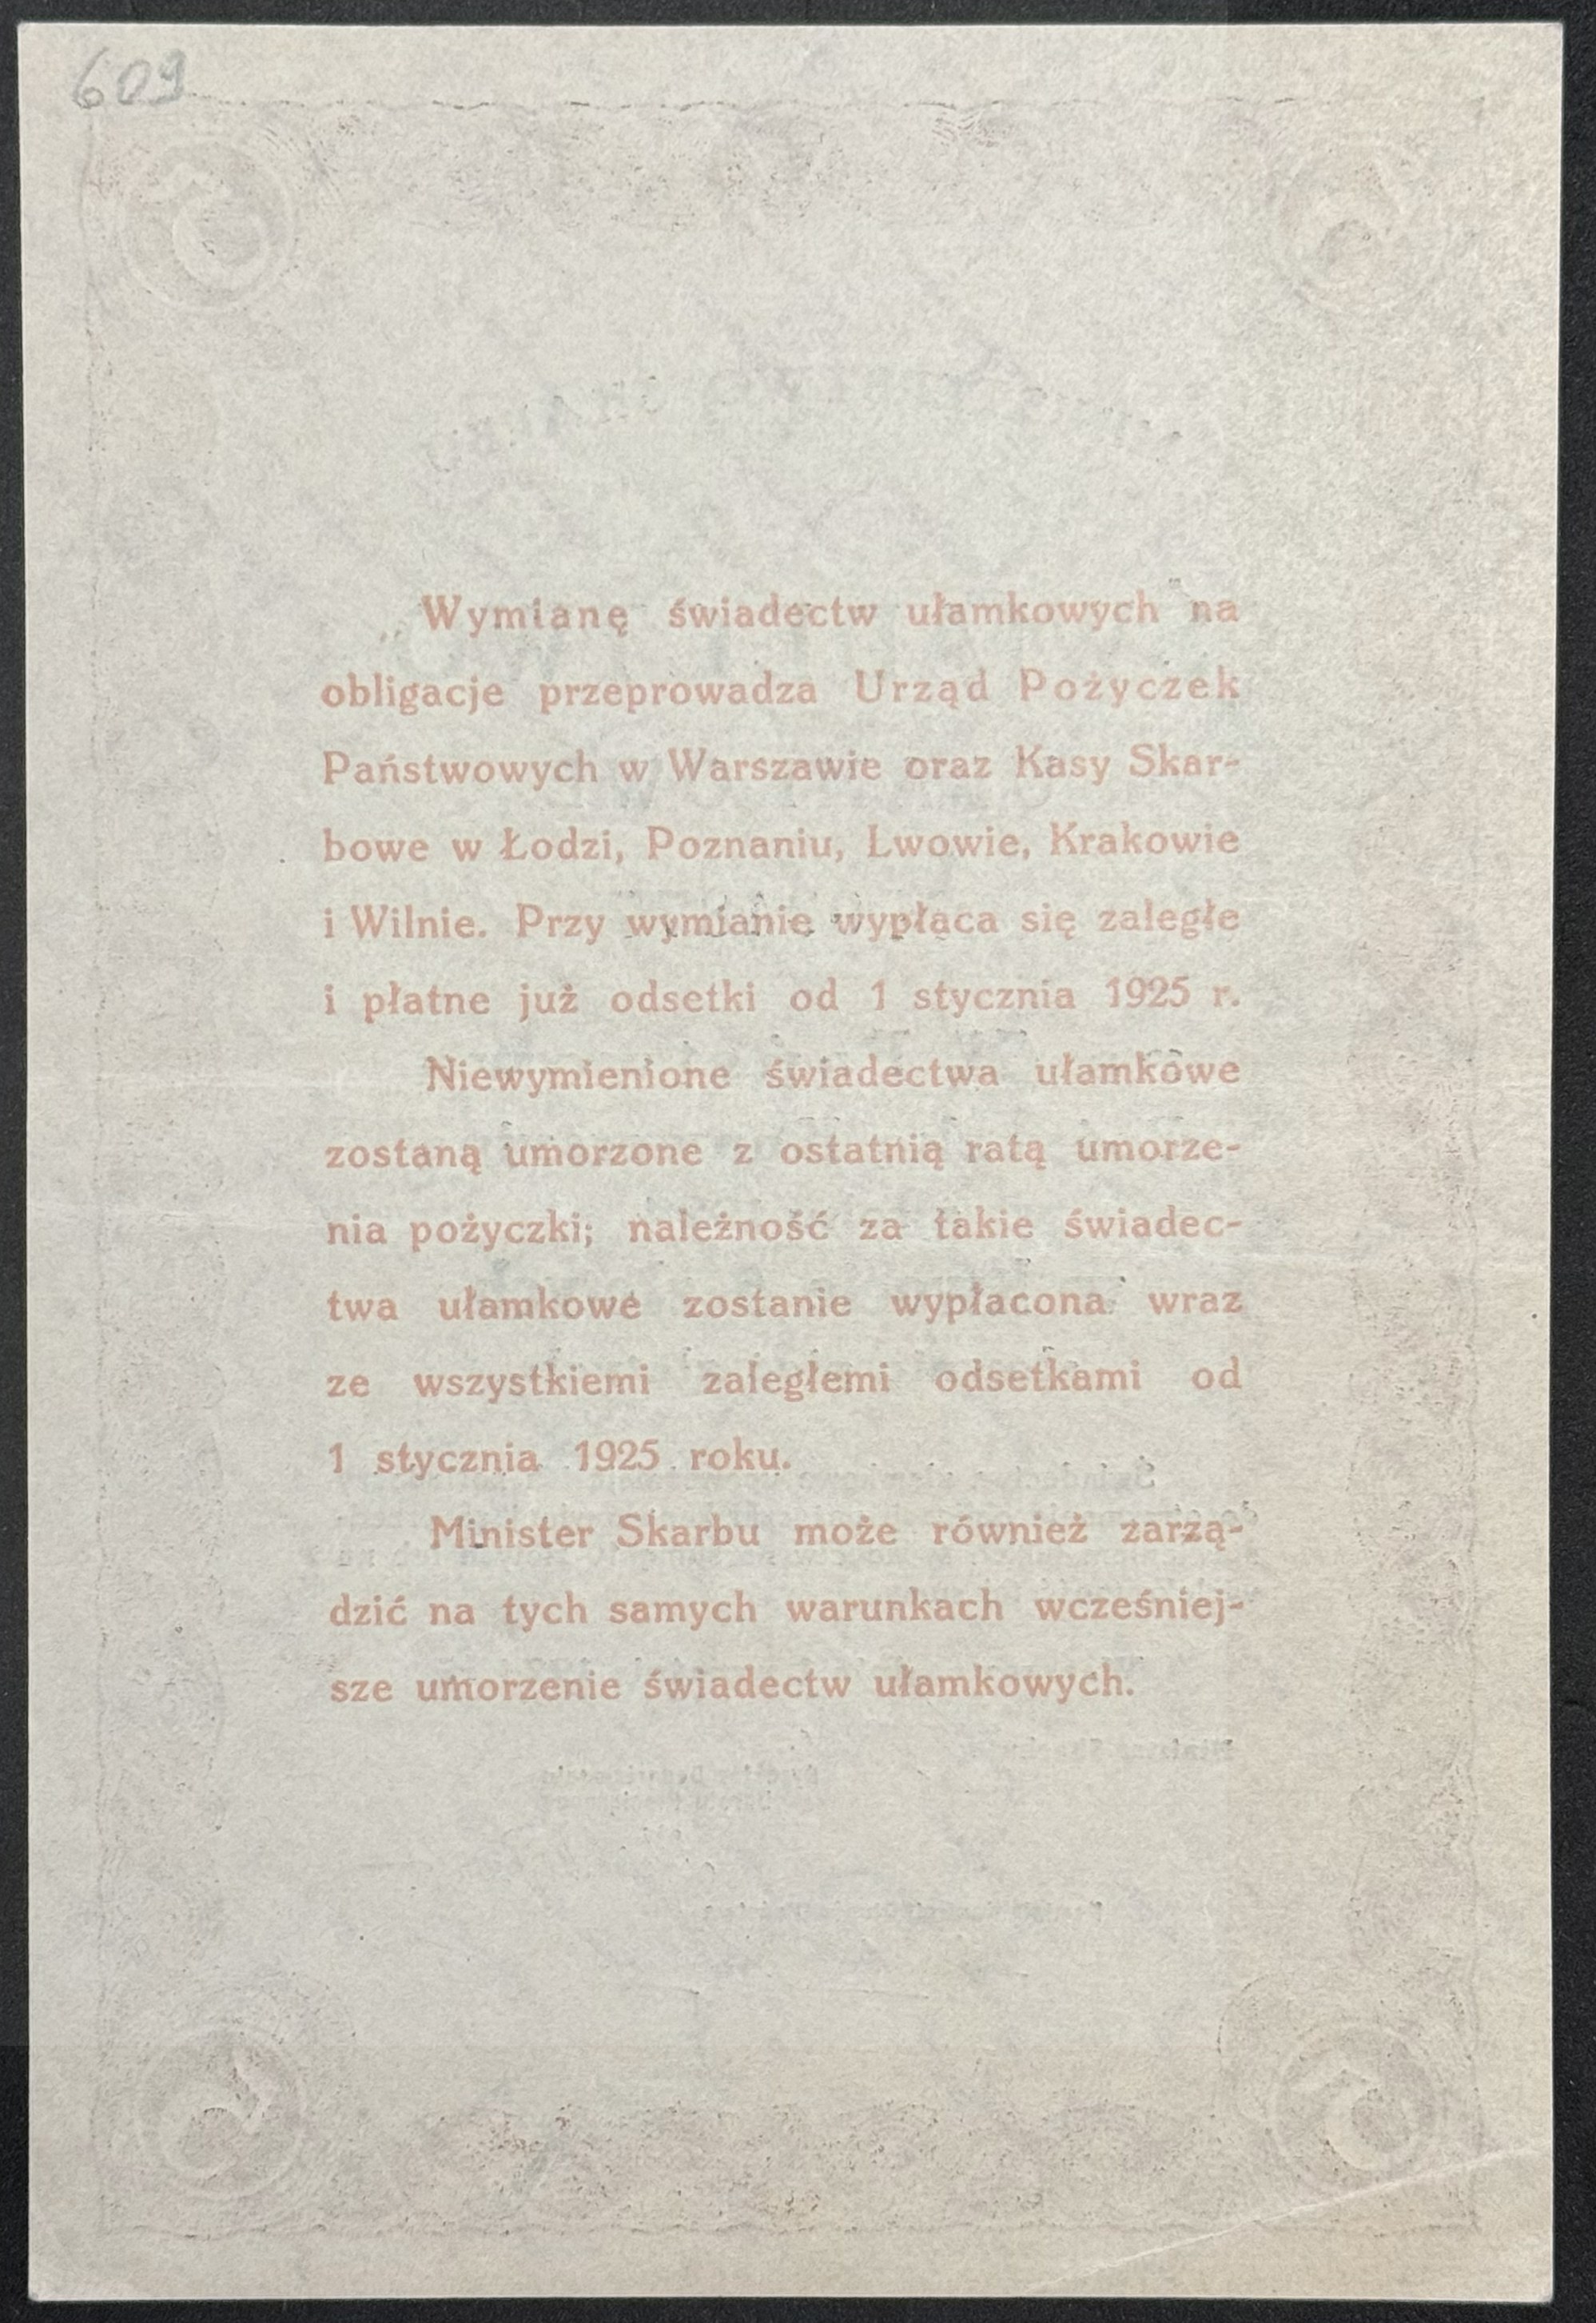 609
Wymianę świadectw ułamkowych na
obligacje przeprowadza Urząd Pożyczek
Państwowych w Warszawie oraz Kasy Skar-
bowe w Łodzi, Poznaniu, Lwowie, Krakowie
i Wilnie. Przy wymianie wypłaca się zaległe
i płatne już odsetki od 1 stycznia 1925 r.
Niewymienione świadectwa ułamkowe
zostaną umorzone z ostatnią ratą umorze-
nia pożyczki; należność za takie świadec-
twa ułamkowe zostanie wypłacona wraz
ze wszystkiemi zaległemi odsetkami od
1 stycznia 1925 roku.
Minister Skarbu może również zarzą-
dzić na tych samych warunkach wcześniej-
sze umorzenie świadectw ułamkowych.